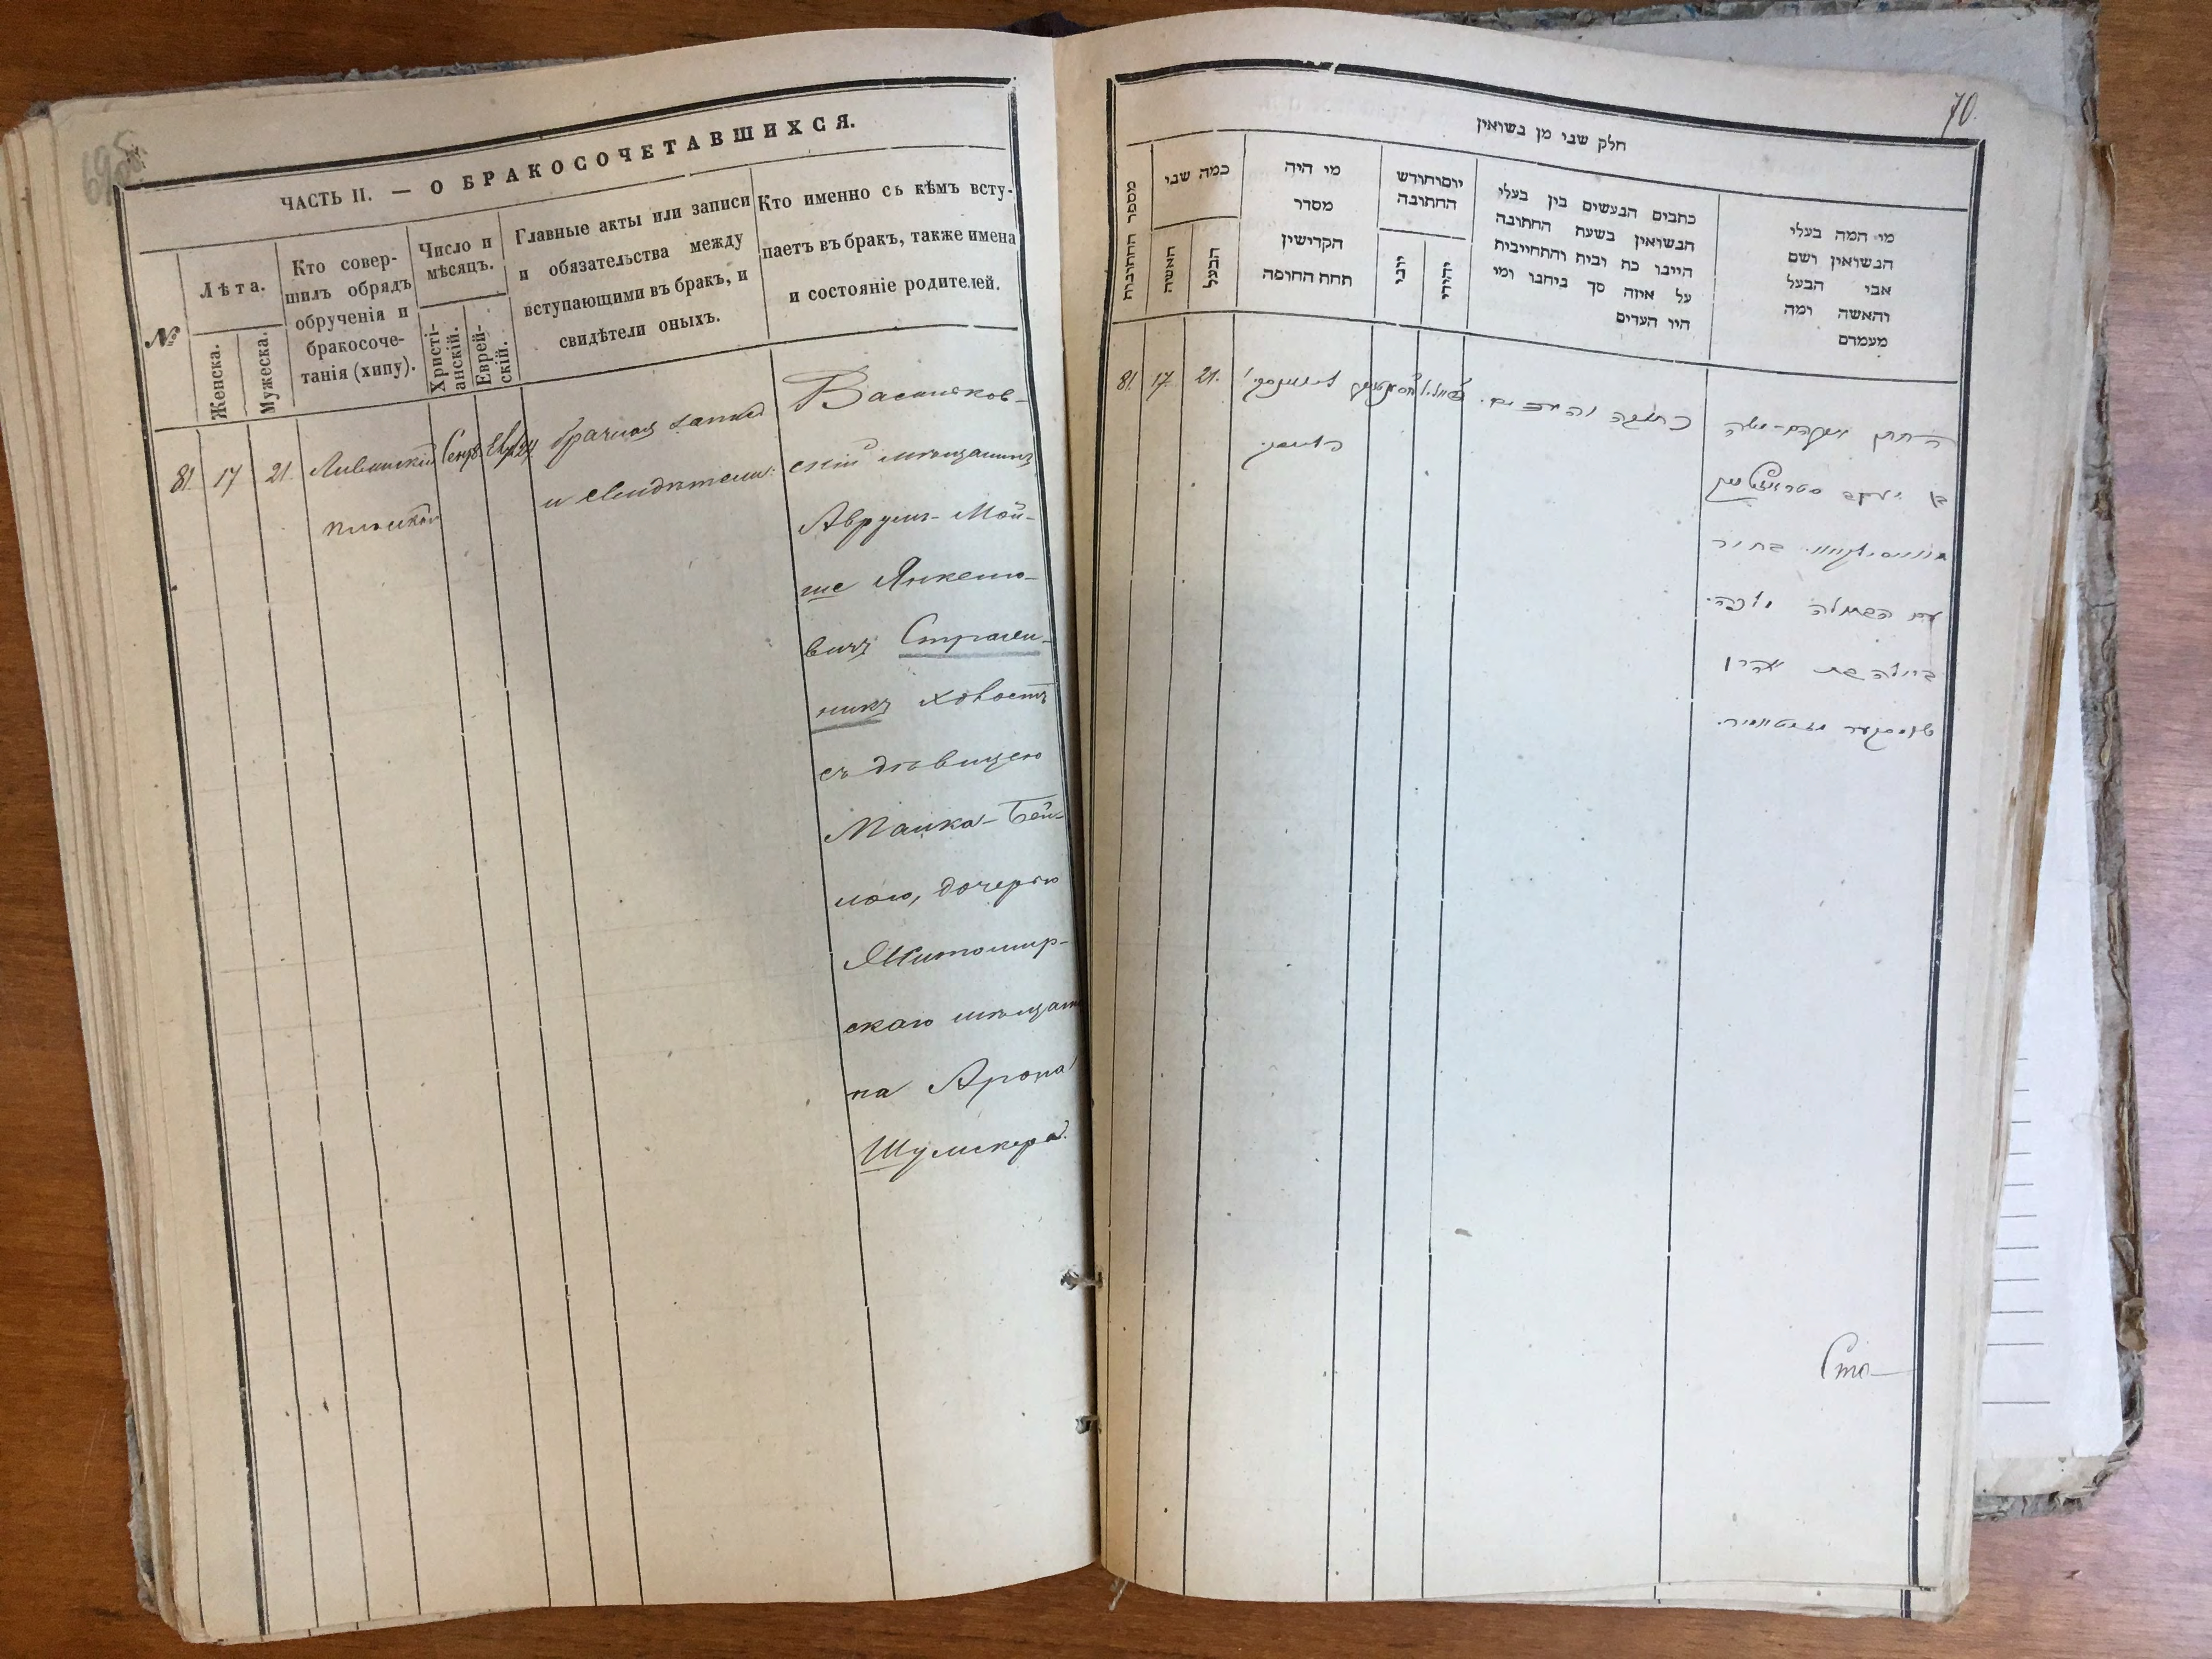 ЧАСТЬ II. — О БРАКОСОЧЕТАВШИХСЯ.
№
Лѣта.
Женска.
Мужеска.
Кто совер-
шилъ обрядъ
обрученія и
бракосоче-
танія (хипу).
Число и
мѣсяцъ.
Христі-
анскій.
Еврей-
скій.
Главные акты или записи
и обязательства между
вступающими въ бракъ, и
свидѣтели оныхъ.
Кто именно съ кѣмъ всту-
паетъ въ бракъ, также имена
и состояніе родителей.
81.
17
21.
брачная запись
и свидѣтели:
Васильков-
скій мѣщанинъ
Аврумъ-Мой-
ше Янкело-
вичъ
холостъ
съ дѣвицею
Малка-Бей-
лою, дочерью
Житомир-
скаго мѣщани
на Арона
Шумскера.
70.
חלק שני מן נשואין
מספר החתונות
כמה שני
האשה
הבעל
מי היה
מסדר
הקדישין
תחת החופה
יוםוחודש
החתונה
יוני
יהודי
כתבים הנעשים בין בעלי
הנשואין בשעת החתונה
היינו כת ובית והתחייבית
על איזה סך ניתנו ומי
היו העדים
מי המה בעלי
הנשואין ושם
אבי הבעל
והאשה ומה
מעמדם
81.
17.
21.
החתן אברהם-משה
בן יעקב
בחור
עם הבתולה מלכה-
ביילה בת אהרן
Сто—